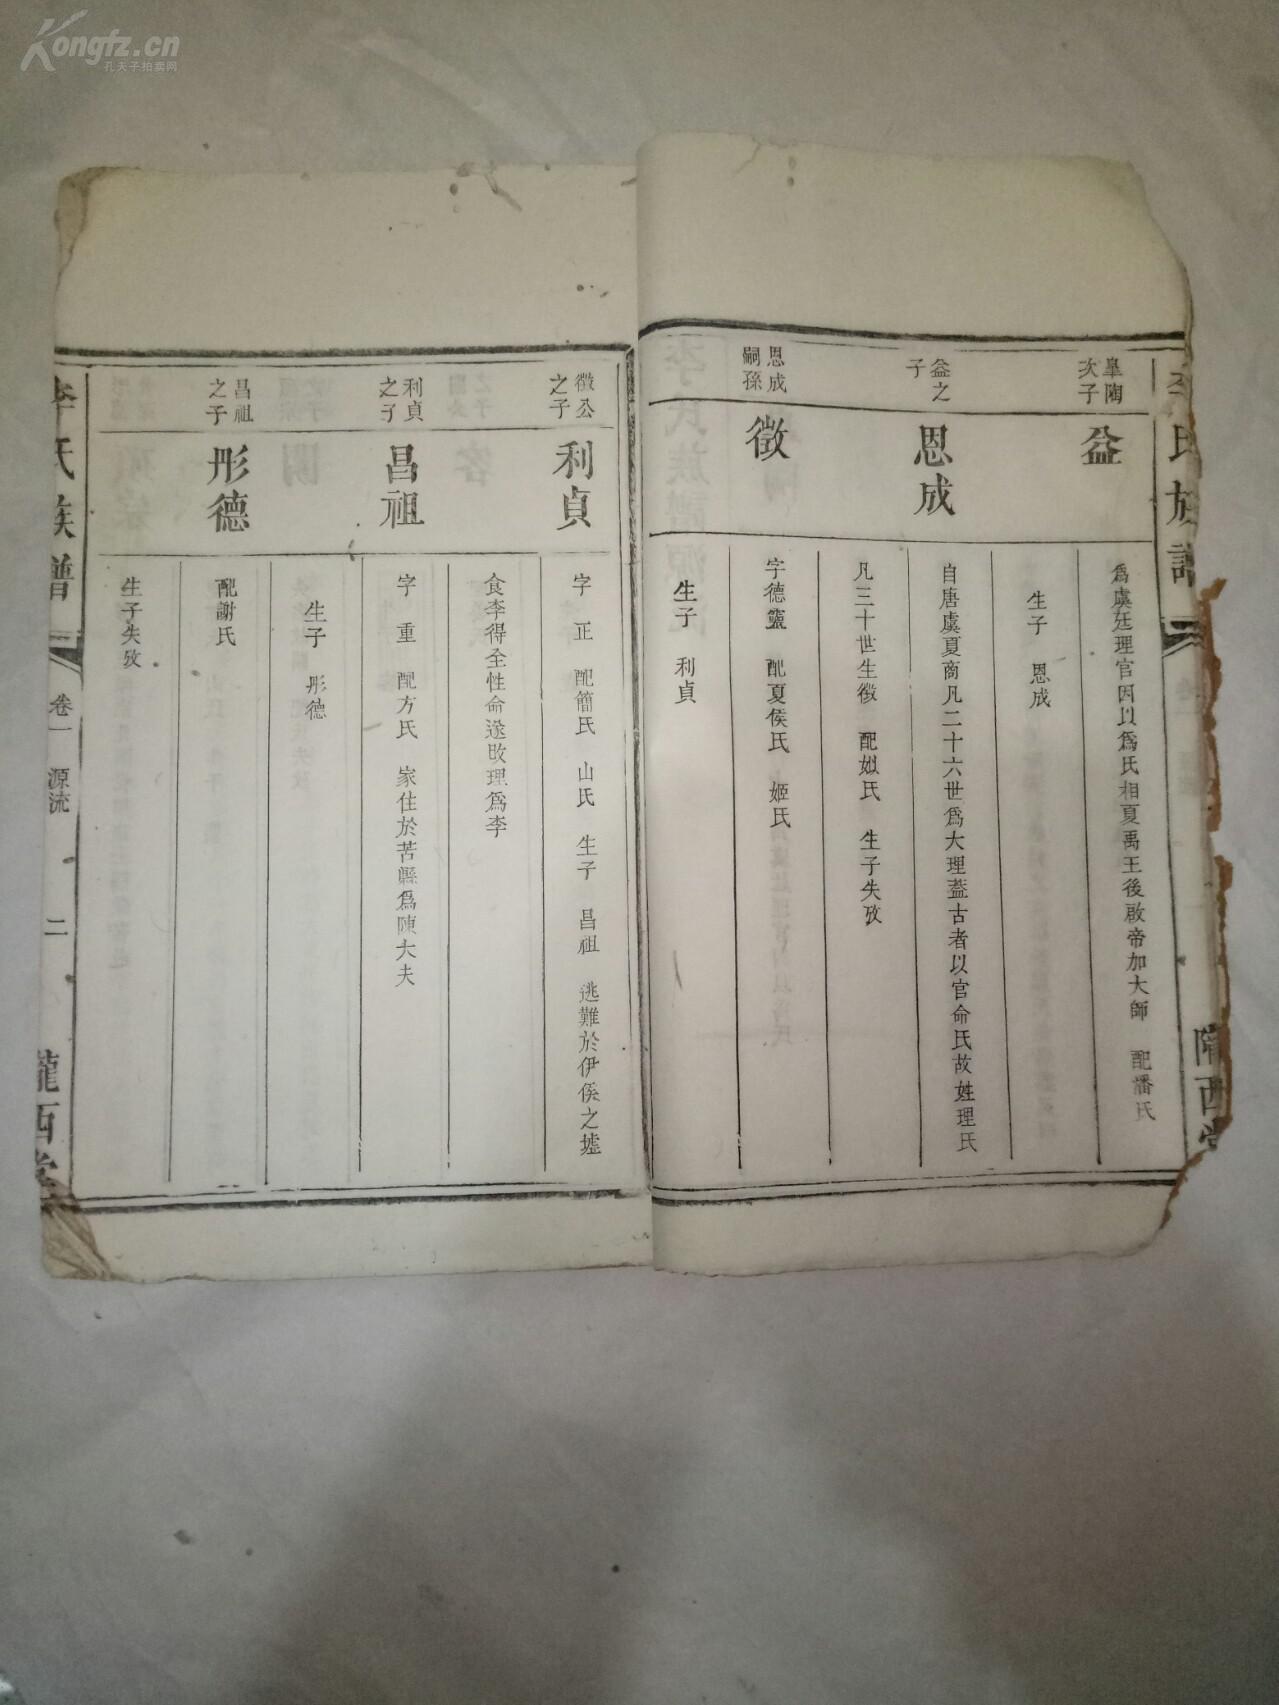 Kongfz.cn
孔夫子拍卖网
李氏族譜
隴西堂
皋陶
次子
益
為虞廷理官因以為氏相夏禹王後啟帝加大師 配潘氏
生子 恩成
益之
子
恩成
自唐虞夏商凡二十六世為大理蓋古者以官命氏故姓理氏
凡三十世生徵 配姒氏 生子失攷
恩成
嗣孫
徵
字德靈 配夏侯氏 姬氏
生子 利貞
徵公
之子
利貞
字 正 配簡氏 山氏 生子 昌祖 逃難於伊侯之墟
食李得全性命遂改理為李
利貞
之子
昌祖
字 重 配方氏 家住於苦縣為陳大夫
生子 彤德
昌祖
之子
彤德
配謝氏
生子失攷
李氏族譜
卷一 源流
二
隴西堂